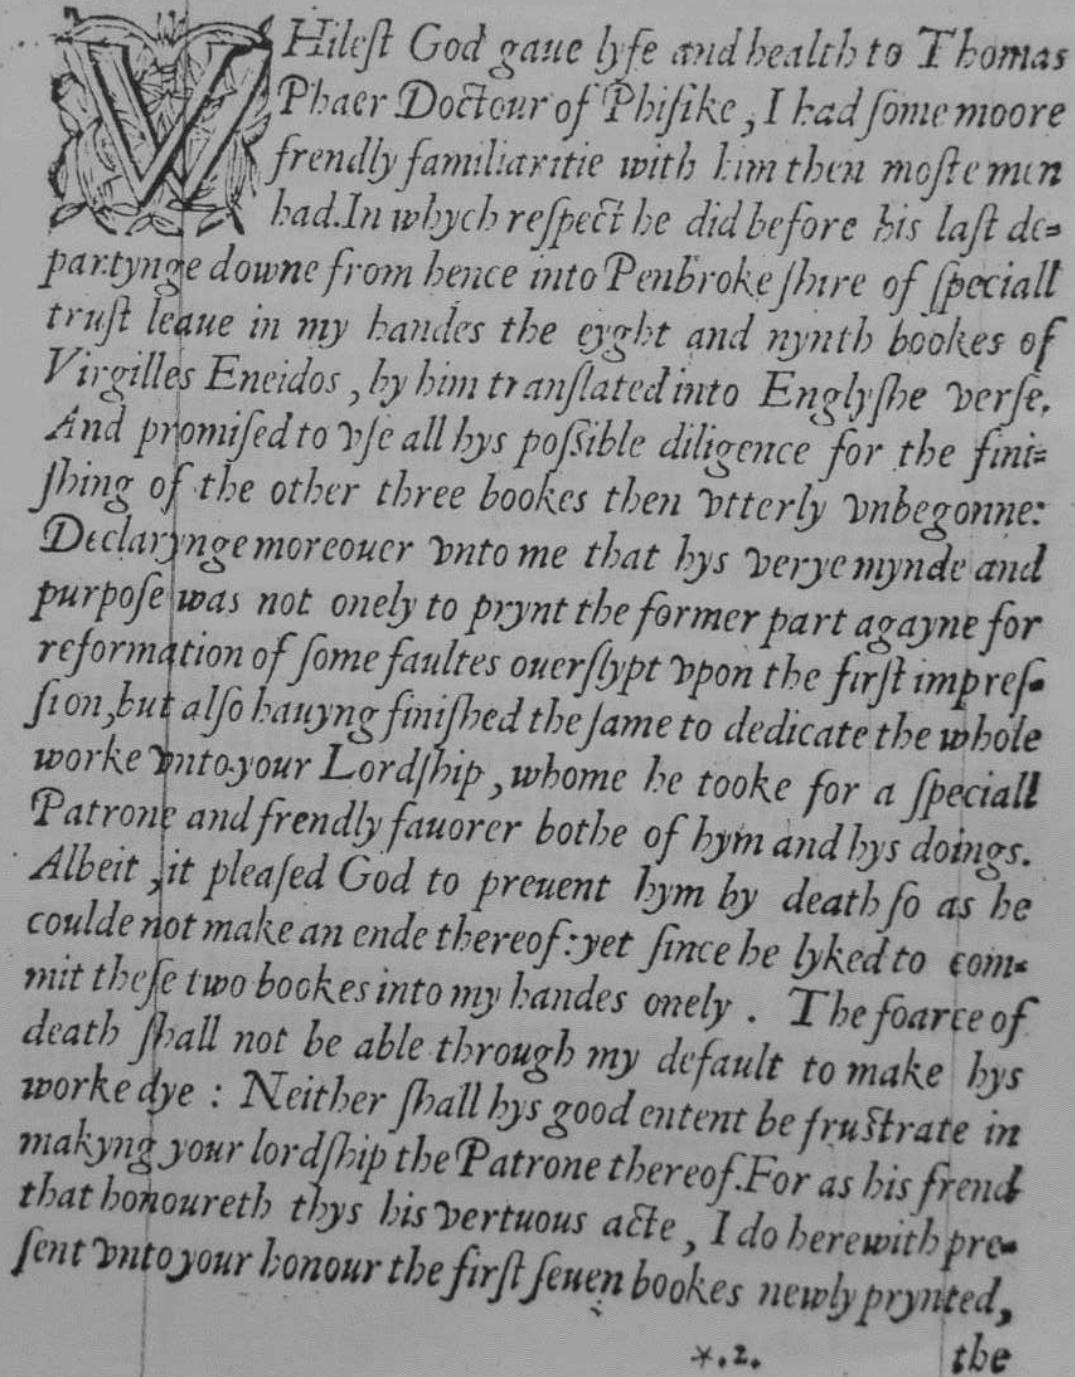 VVHileſt God gaue lyfe and health to Thomas
Phaer Doctour of Phiſike, I had ſome moore
frendly familiaritie with him then moſte men
had. In whych reſpect he did before his laſt de=
partynge downe from hence into Penbroke ſhire of ſpeciall
truſt leaue in my handes the eyght and nynth bookes of
Virgilles Eneidos, by him tranſlated into Englyſhe verſe.
And promiſed to vſe all hys poſſible diligence for the fini=
ſhing of the other three bookes then vtterly vnbegonne:
Declarynge moreouer vnto me that hys verye mynde and
purpoſe was not onely to prynt the former part agayne for
reformation of ſome faultes ouerſlypt vpon the firſt impreſ=
ſion, but alſo hauyng finiſhed the ſame to dedicate the whole
worke vnto your Lordſhip, whome he tooke for a ſpeciall
Patrone and frendly fauorer bothe of hym and hys doings.
Albeit, it pleaſed God to preuent hym by death ſo as he
coulde not make an ende thereof: yet ſince he lyked to com=
mit theſe two bookes into my handes onely. The foarce of
death ſhall not be able through my default to make hys
worke dye: Neither ſhall hys good entent be fruſtrate in
makyng your lordſhip the Patrone thereof. For as his frend
that honoureth thys his vertuous acte, I do herewith pre=
ſent vnto your honour the firſt ſeuen bookes newly prynted,
*.2. the